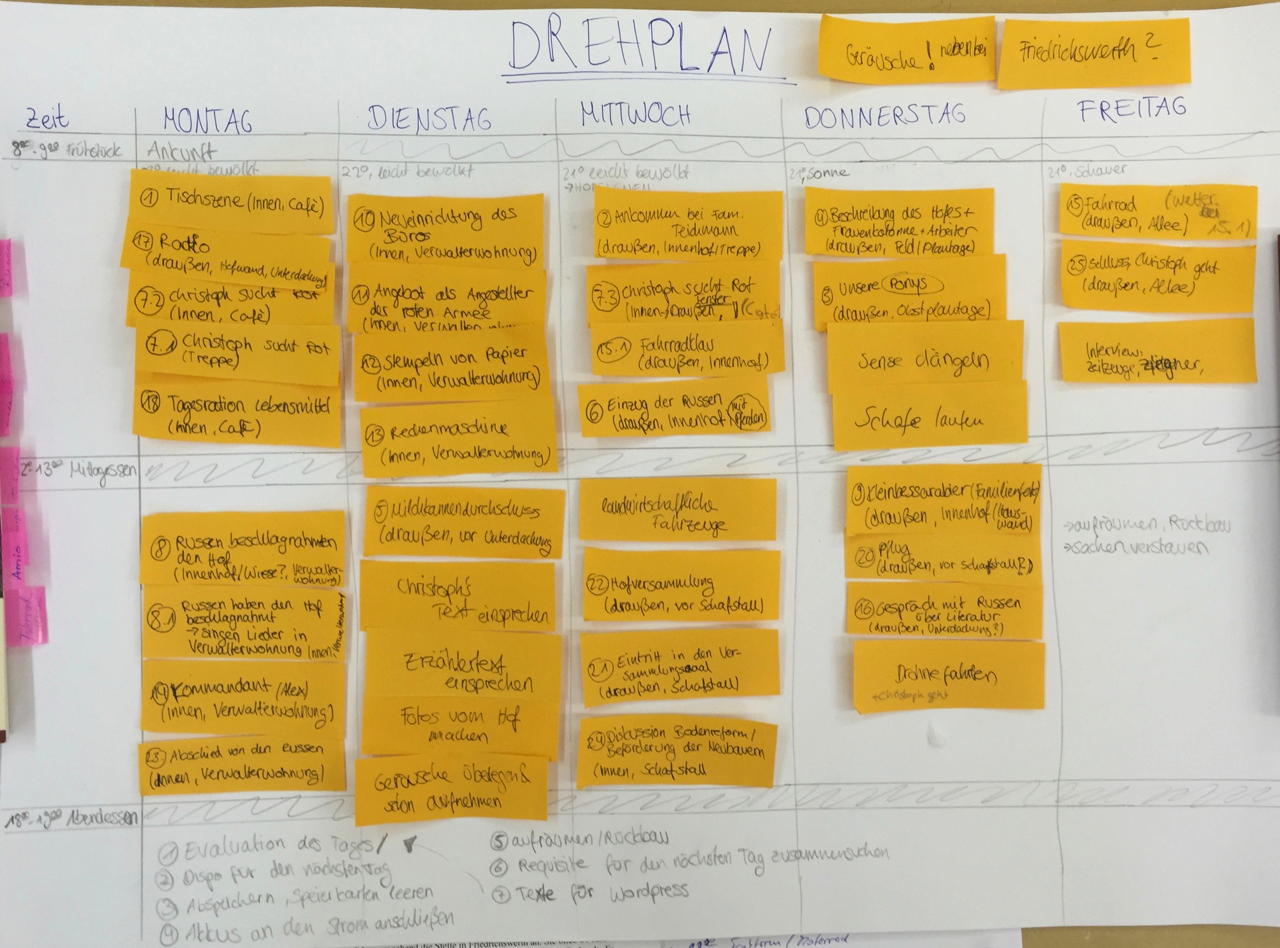 DREHPLAN
Geräusche! nebenbei
Friedrichswerth?
Zeit
MONTAG
DIENSTAG
MITTWOCH
DONNERSTAG
FREITAG
8⁰⁰-9⁰⁰ Frühstück
Ankunft
leicht bewölkt
① Tischszene (Innen, Cafè)
⑰ Radio
(draußen, Hofwand, Unterdachung)
7.2 Christoph sucht Rot
(Innen, Cafè)
7.1 Christoph sucht Rot
(Treppe)
⑱ Tagesration Lebensmittel
(Innen, Cafè)
22°, leicht bewölkt
⑩ Neueinrichtung des
Büros
(Innen, Verwalterwohnung)
⑪ Angebot als Angestellter
der roten Armee
(Innen, Verwalterwohnung)
⑫ Stempeln von Papier
(Innen, Verwalterwohnung)
⑬ Rechenmaschine
(Innen, Verwalterwohnung)
21° leicht bewölkt
② Ankommen bei Fam.
Teichmann
(draußen, Innenhof/Treppe)
7.3 Christoph sucht Rot
Fenster
(Innen→Draußen,
15.1 Fahrradklau
(draußen, Innenhof)
⑥ Einzug der Russen
(draußen, Innenhof mit
Pferden)
21°, Sonne
④ Beschreibung des Hofes +
Frauenkolonne + Arbeiter
(draußen, Feld/Plantage)
③ Unsere Ponys
(draußen, Obstplantage)
Sense dängeln
Schafe laufen
21°, Schauer
⑮ Fahrrad (Wetter
bei
15.1)
(draußen, Allee)
㉕ Schluss, Christoph geht
(draußen, Allee)
Interview:
Zeitzeuge,
2⁰⁰-13⁰⁰ Mittagessen
⑧ Russen beschlagnahmten
den Hof
(Innenhof/Wiese?, Verwalter-
wohnung)
8.1 Russen haben den Hof
beschlagnahmt
→ singen Lieder in
Verwalterwohnung (Innen, Verwalterwohnung)
⑲ Kommandant (Alex)
(Innen, Verwalterwohnung)
㉓ Abschied von den Russen
(Innen, Verwalterwohnung)
⑤ Milchkannendurchschuss
(draußen, vor Unterdachung
Christoph's
Text einsprechen
Erzählertext
einsprechen
Fotos vom Hof
machen
Geräusche überlegen &
schon aufnehmen
landwirtschaftliche
Fahrzeuge
㉒ Hofversammlung
(draußen, vor Schafstall)
㉑ Eintritt in den Ver-
sammlungssaal
(draußen, Schafstall)
㉔ Diskussion Bodenreform/
Beförderung der Neubauern
(Innen, Schafstall
⑨ Kleinbessarabier (Familienfoto)
(draußen, Innenhof/Haus-
wand)
⑳ Pflug
(draußen, vor Schafstall?)
⑯ Gespräch mit Russen
über Literatur
(draußen, Unterdachung?)
Drohne fahrten
+ Christoph geht
→ aufräumen, Rückbau
→ Sachen verstauen
Amie
18⁰⁰-19⁰⁰ Abendessen
① Evaluation des Tages/
② Dispo für den nächsten Tag
③ Abspeichern, Speicherkarten leeren
④ Akkus an den Strom anschließen
⑤ aufräumen/Rückbau
⑥ Requisite für den nächsten Tag zusammensuchen
⑦ Texte für Wordpress